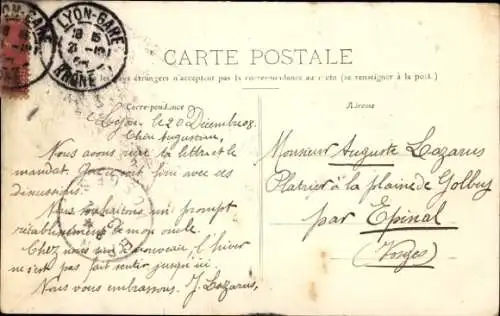 LYON-GARE
18 15
21 -12
RHONE
CARTE POSTALE
pays étrangers n'acceptent pas la correspondance au recto (se renseigner à la poste.)
Correspondance
Adresse
Lyon le 20 Décembre 08.
Chère Augustine,
Nous avons reçu ta lettre et le
mandat. soit fini avec ces
discussions.
Nous souhaitons un prompt
rétablissement de mon oncle.
Chez nous rien de nouveau l'hiver
ne s'est pas fait sentir jusqu'ici.
Nous vous embrassons. J. Lazarus.
Monsieur Auguste Lazarus
Platrier à la plaine de Golbey
par Epinal
(Vosges)